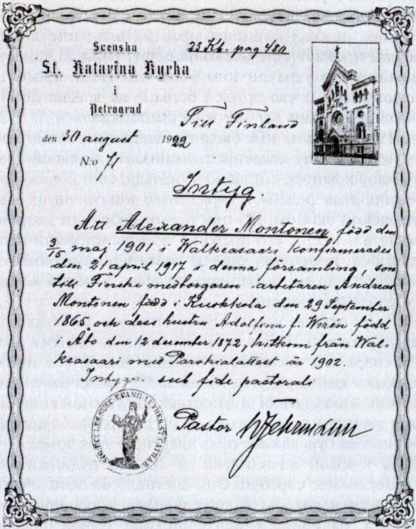 Svenska
St. Katarina Kyrka
i
Petrograd
den 30 august 1922
No 71
Till Finland
Intyg
Att Alexander Montonen född den
3/15 maj 1901 i Walkeasaari, konfirmerad
den 21 april 1917 i denna församling, son
till Finske medborgaren arbetaren Andreas
Montonen född i Kurkkola den 29 September
1865 och dess hustru Adolfina f. Wirén född
i Åbo den 12 december 1872, hitkom från Wal-
keasaari med Parokialattest år 1902.
Intygar sub fide pastorali
Pastor